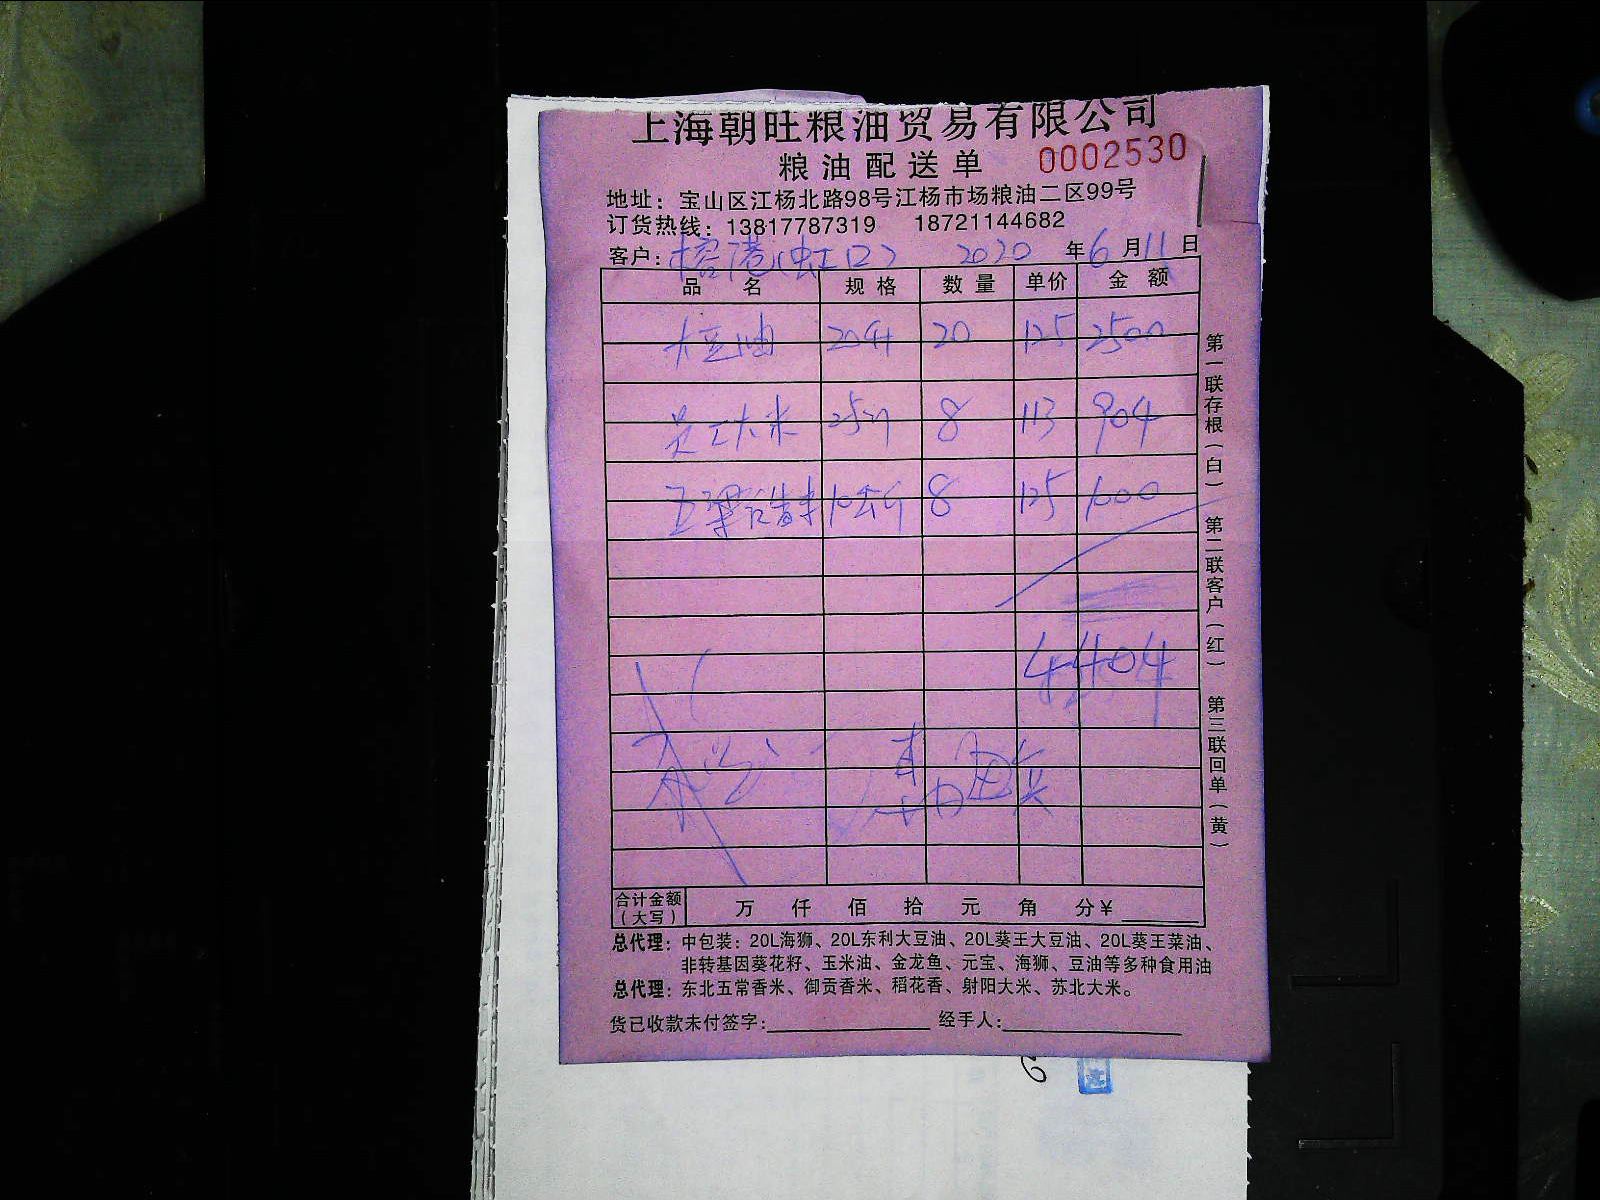 上海朝旺粮油贸易有限公司
粮油配送单 0002530
地址：宝山区江杨北路98号江杨市场粮油二区99号
订货热线：13817787319 18721144682
客户：榕港(虹口) 2020年6月11日
品名 规格 数量 单价 金额
大豆油 20升 20 125 2500
员工大米 25 8 113 904
五 米 10公斤 8 125 1000
4404
合计金额（大写） 万 仟 佰 拾 元 角 分¥
总代理：中包装：20L海狮、20L东利大豆油、20L葵王大豆油、20L葵王菜油、
非转基因葵花籽、玉米油、金龙鱼、元宝、海狮、豆油等多种食用油
总代理：东北五常香米、御贡香米、稻花香、射阳大米、苏北大米。
货已收款未付签字： 经手人：
第一联存根（白） 第二联客户（红） 第三联回单（黄）